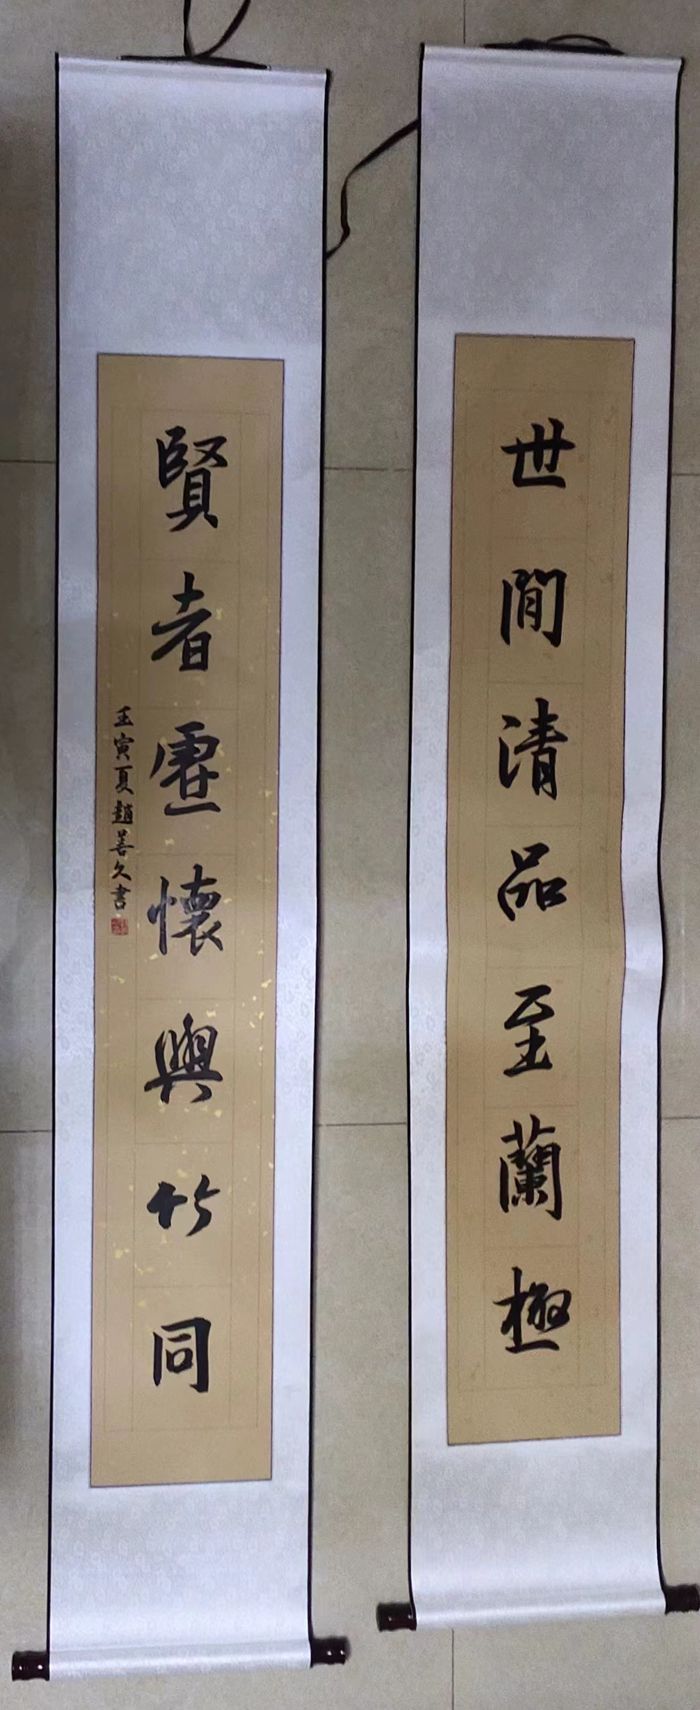 世間清品至蘭極
賢者虛懷與竹同
壬寅夏趙善久書